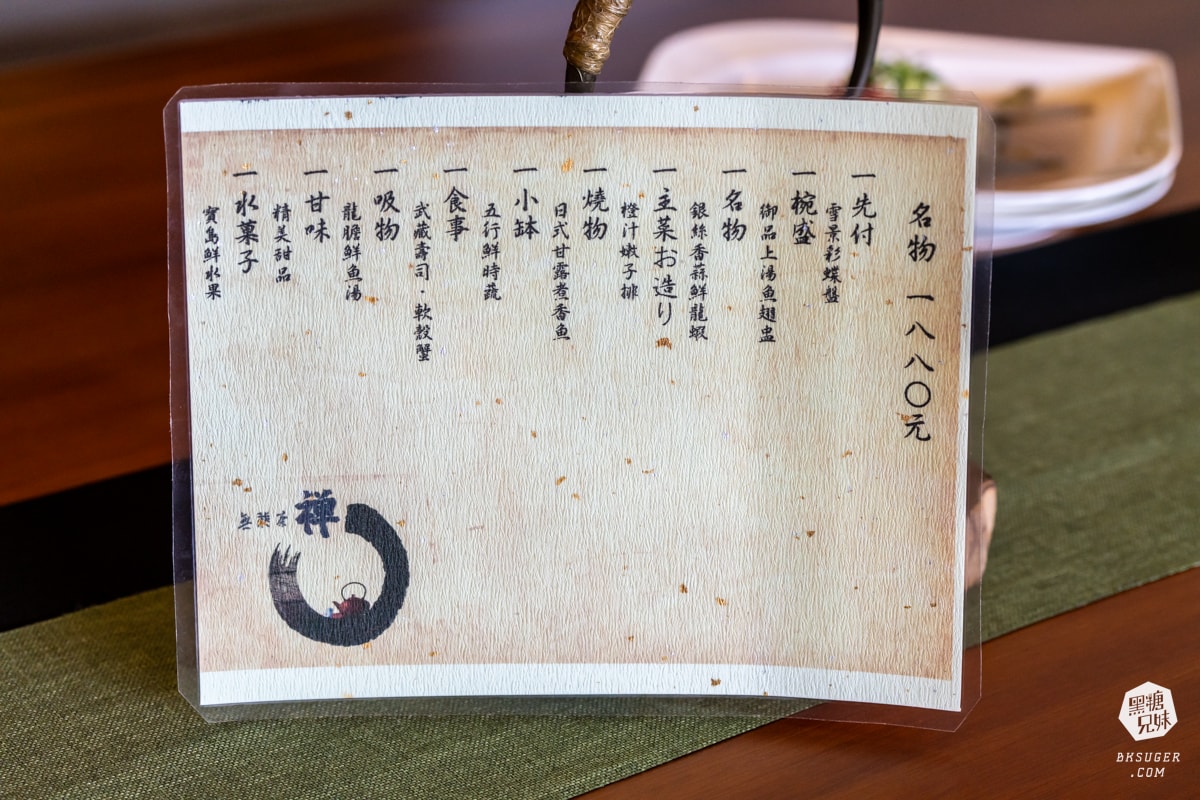 名物 一八八〇元
一先付
雪景彩蝶盤
一椀盛
御品上湯魚翅盅
一名物
銀絲香蒜鮮龍蝦
一主菜お造り
橙汁嫩子排
一燒物
日式甘露煮香魚
一小缽
五行鮮時蔬
一食事
武藏壽司．軟殼蟹
一吸物
龍膽鮮魚湯
一甘味
精美甜品
一水菓子
寶島鮮水果
禅
黑糖兄妹
BKSUGER
.COM